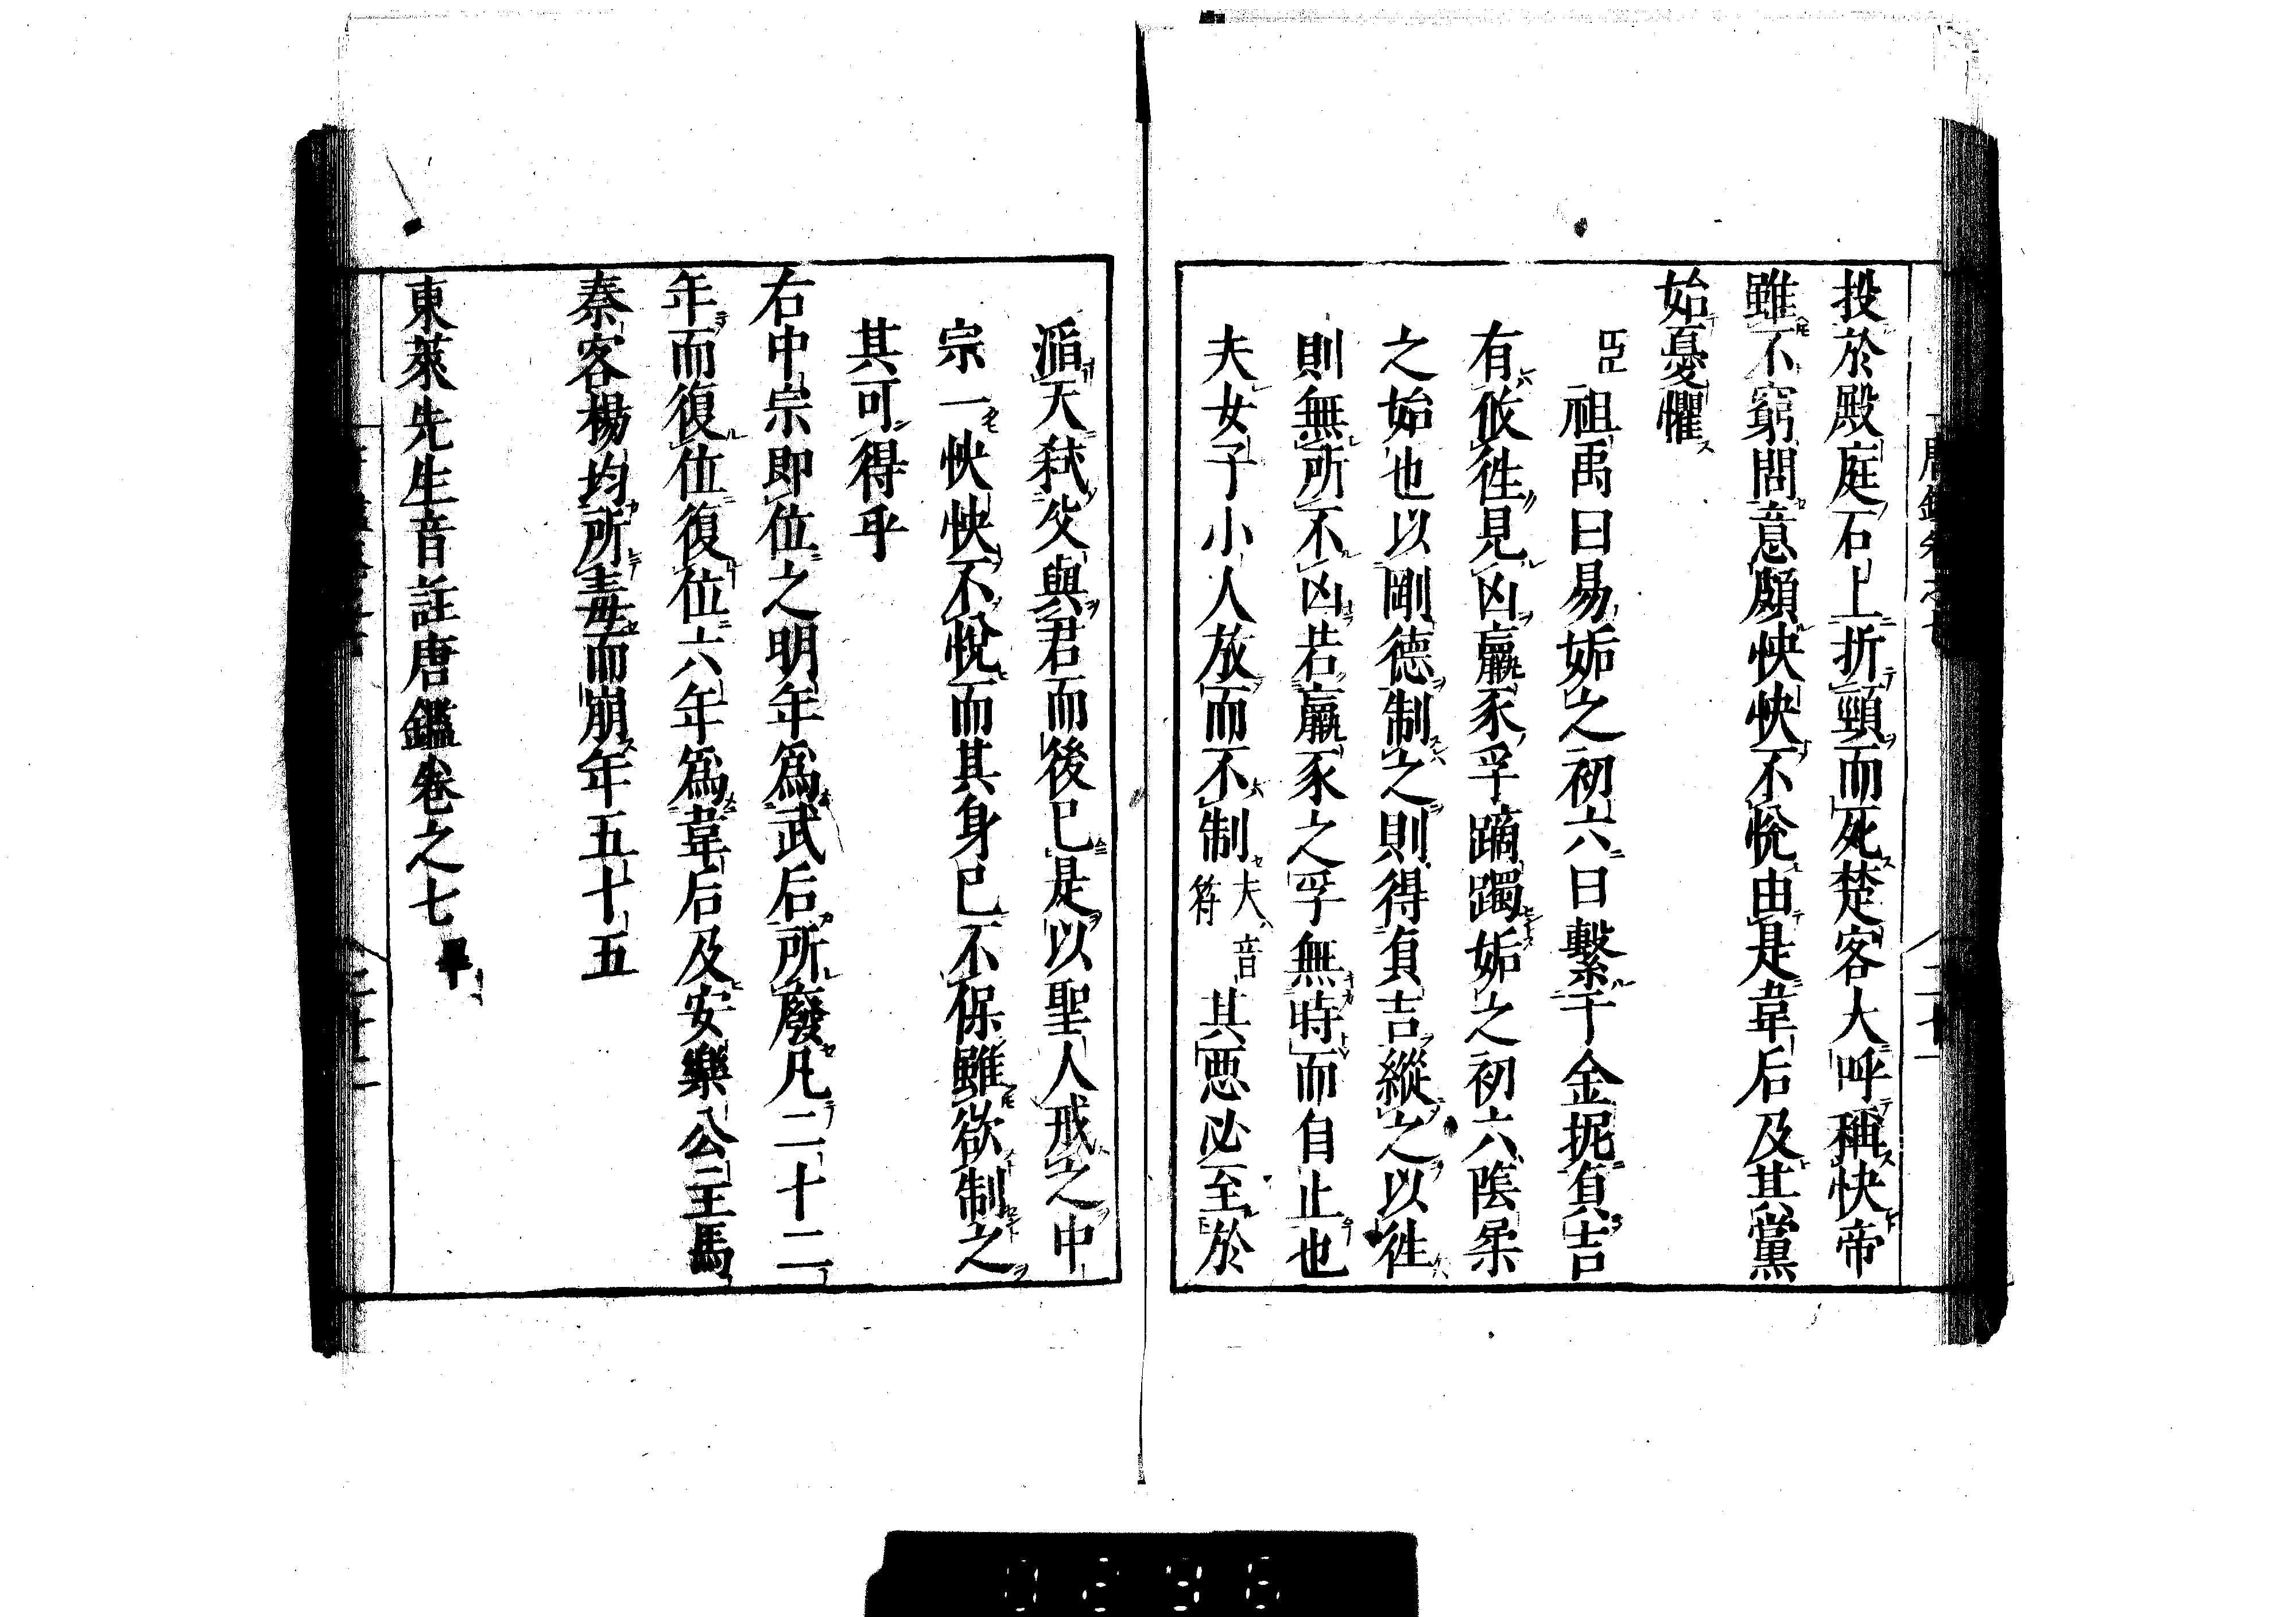 投於殿庭石上折頸而死楚客大呼稱快帝
雖不窮問意頗怏怏不悅由是韋后及其黨
始憂懼
臣祖禹曰易姤之初六曰繫于金柅貞吉
有攸往見凶羸豕孚蹢躅姤之初六陰柔
之始也以剛德制之則得貞吉縱之以往
則無所不凶若羸豕之孚無時而自止也
夫女子小人放而不制夫音符其惡必至於
滔天弑父與君而後已是以聖人戒之中
宗一怏怏不悅而其身已不保雖欲制之
其可得乎
右中宗即位之明年爲武后所廢凡二十二
年而復位復位六年爲韋后及安樂公主馬
秦客楊均所毒而崩年五十五
東萊先生音註唐鑑卷之七